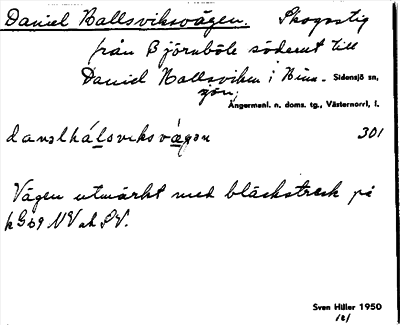 Daniel Hallsviksvägen. Skogsstig
från Björnböle söderut till
Daniel Hallsviken i Hinn- Sidensjö sn,
sjön.
Ångermanl. n. doms. tg., Västernorrl, l.
301
Vägen utmärkt med bläckstreck på
NV och SV.
Sven Hiller 1950